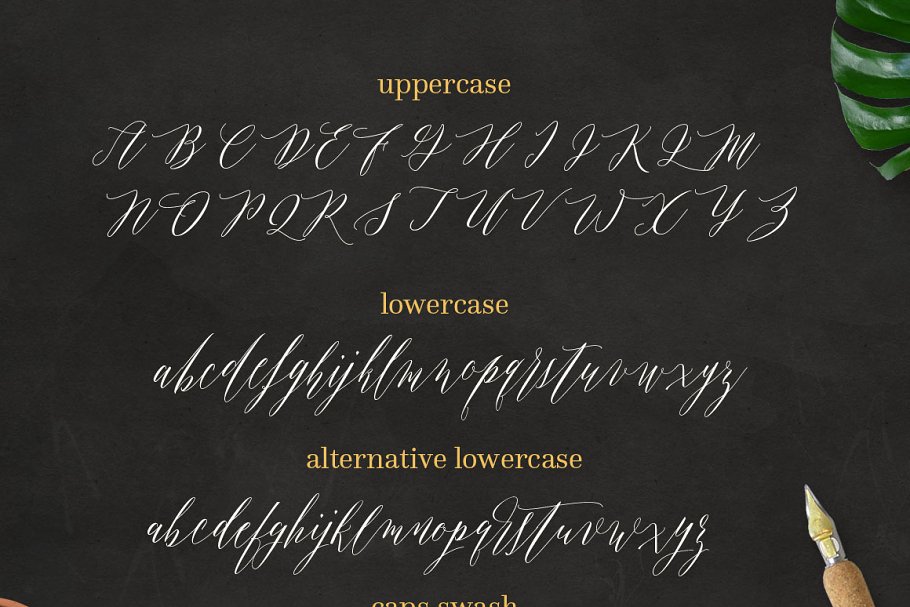 uppercase
A B C D E F G H I J K L M
N O P Q R S T U V W X Y Z
lowercase
abcdefghijklmnopqrstuvwxyz
alternative lowercase
abcdefghijklmnopqrstuvwxyz
caps swash